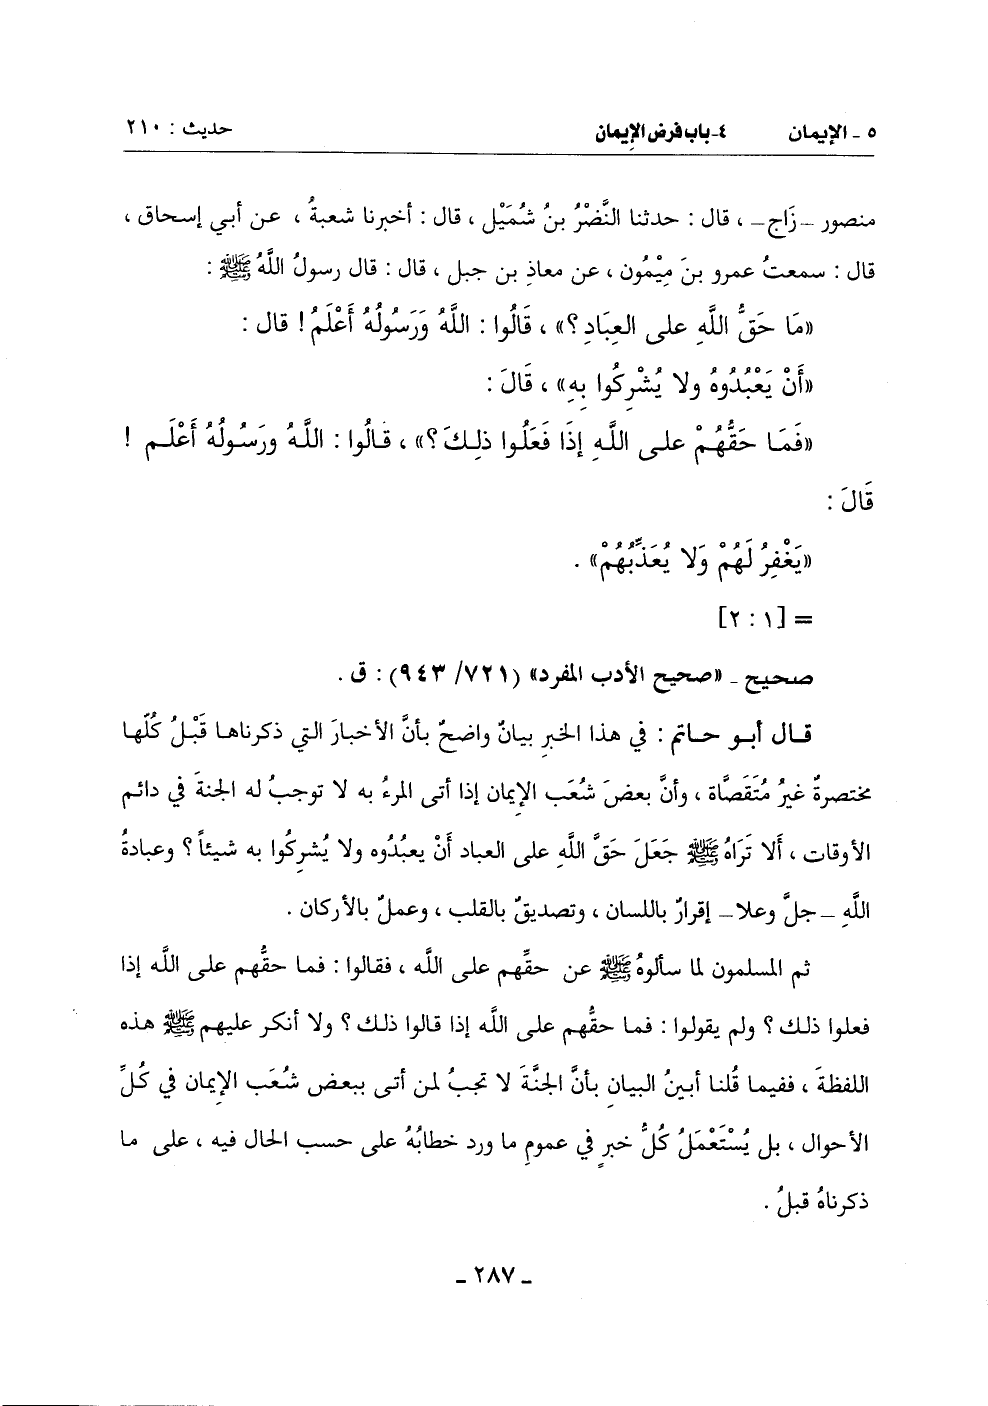 ٥ - الإيمان ٤- باب فرض الإيمان حديث : ٢١٠
منصور –زَاج– ، قال : حدثنا النَّضْرُ بنُ شُمَيْل ، قال : أخبرنا شعبةُ ، عن أبي إسحاق ،
قال : سمعتُ عمرو بنَ مِيْمُون ، عن معاذِ بن جبل ، قال : قال رسولُ اللَّهُ ﷺ :
«مَا حَقُّ اللَّهِ على العِبَادِ ؟» ، قَالُوا : اللَّهُ وَرَسُولُهُ أَعْلَمُ ! قال :
«أَنْ يَعْبُدُوهُ ولا يُشْرِكُوا بِهِ» ، قَالَ :
«فَمَا حَقُّهُمْ على اللَّهِ إذَا فَعَلُوا ذلِكَ ؟» ، قَالُوا : اللَّهُ ورَسُولُهُ أَعْلَم !
قَالَ :
«يَغْفِرُ لَهُمْ وَلا يُعَذِّبُهُمْ» .
= [١ : ٢]
صحيح - «صحيح الأدب المفرد» (٧٢١/ ٩٤٣) : ق .
قال أبو حاتم : في هذا الخبرِ بيانٌ واضحٌ بأنَّ الأخبارَ التي ذكرناها قَبْلُ كُلّها
مختصرةٌ غيرُ مُتَقَصَّاة ، وأنَّ بعضَ شُعَب الإيمان إذا أتى المرءُ به لا توجبُ له الجنةَ في دائم
الأوقات ، أَلا تَرَاهُ ﷺ جَعَلَ حَقَّ اللَّهِ على العباد أَنْ يعبُدُوه ولا يُشرِكُوا به شيئاً ؟ وعبادةُ
اللَّهِ –جلَّ وعلا– إقرارٌ باللسان ، وتصديقٌ بالقلب ، وعملٌ بالأركان .
ثم المسلمون لما سألوهُ ﷺ عن حقِّهم على اللَّه ، فقالوا : فما حقُّهم على اللَّه إذا
فعلوا ذلك ؟ ولم يقولوا : فما حقُّهم على اللَّه إذا قالوا ذلك ؟ ولا أنكر عليهم ﷺ هذه
اللفظةَ ، ففيما قُلنا أبينُ البيانِ بأنَّ الجنَّةَ لا تجبُ لمن أتى ببعض شُعَب الإيمان في كُلِّ
الأحوال ، بل يُسْتَعْمَلُ كُلُّ خبرٍ في عمومِ ما ورد خطابُهُ على حسب الحال فيه ، على ما
ذكرناهُ قبلُ .
- ٢٨٧ -